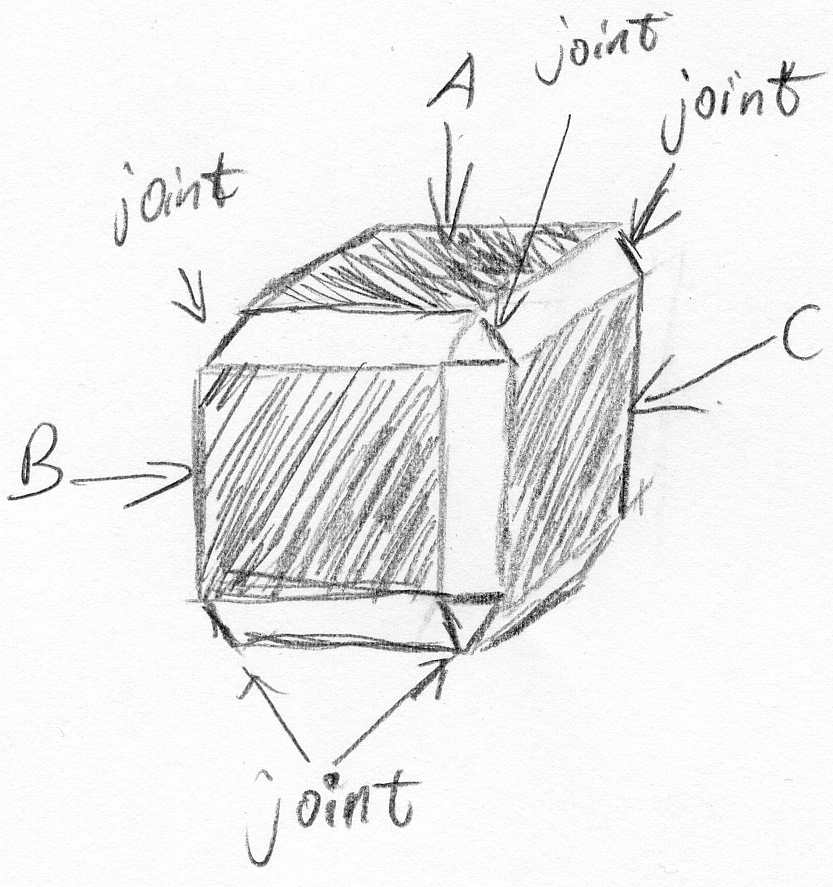 joint
A
joint
joint
C
B
joint